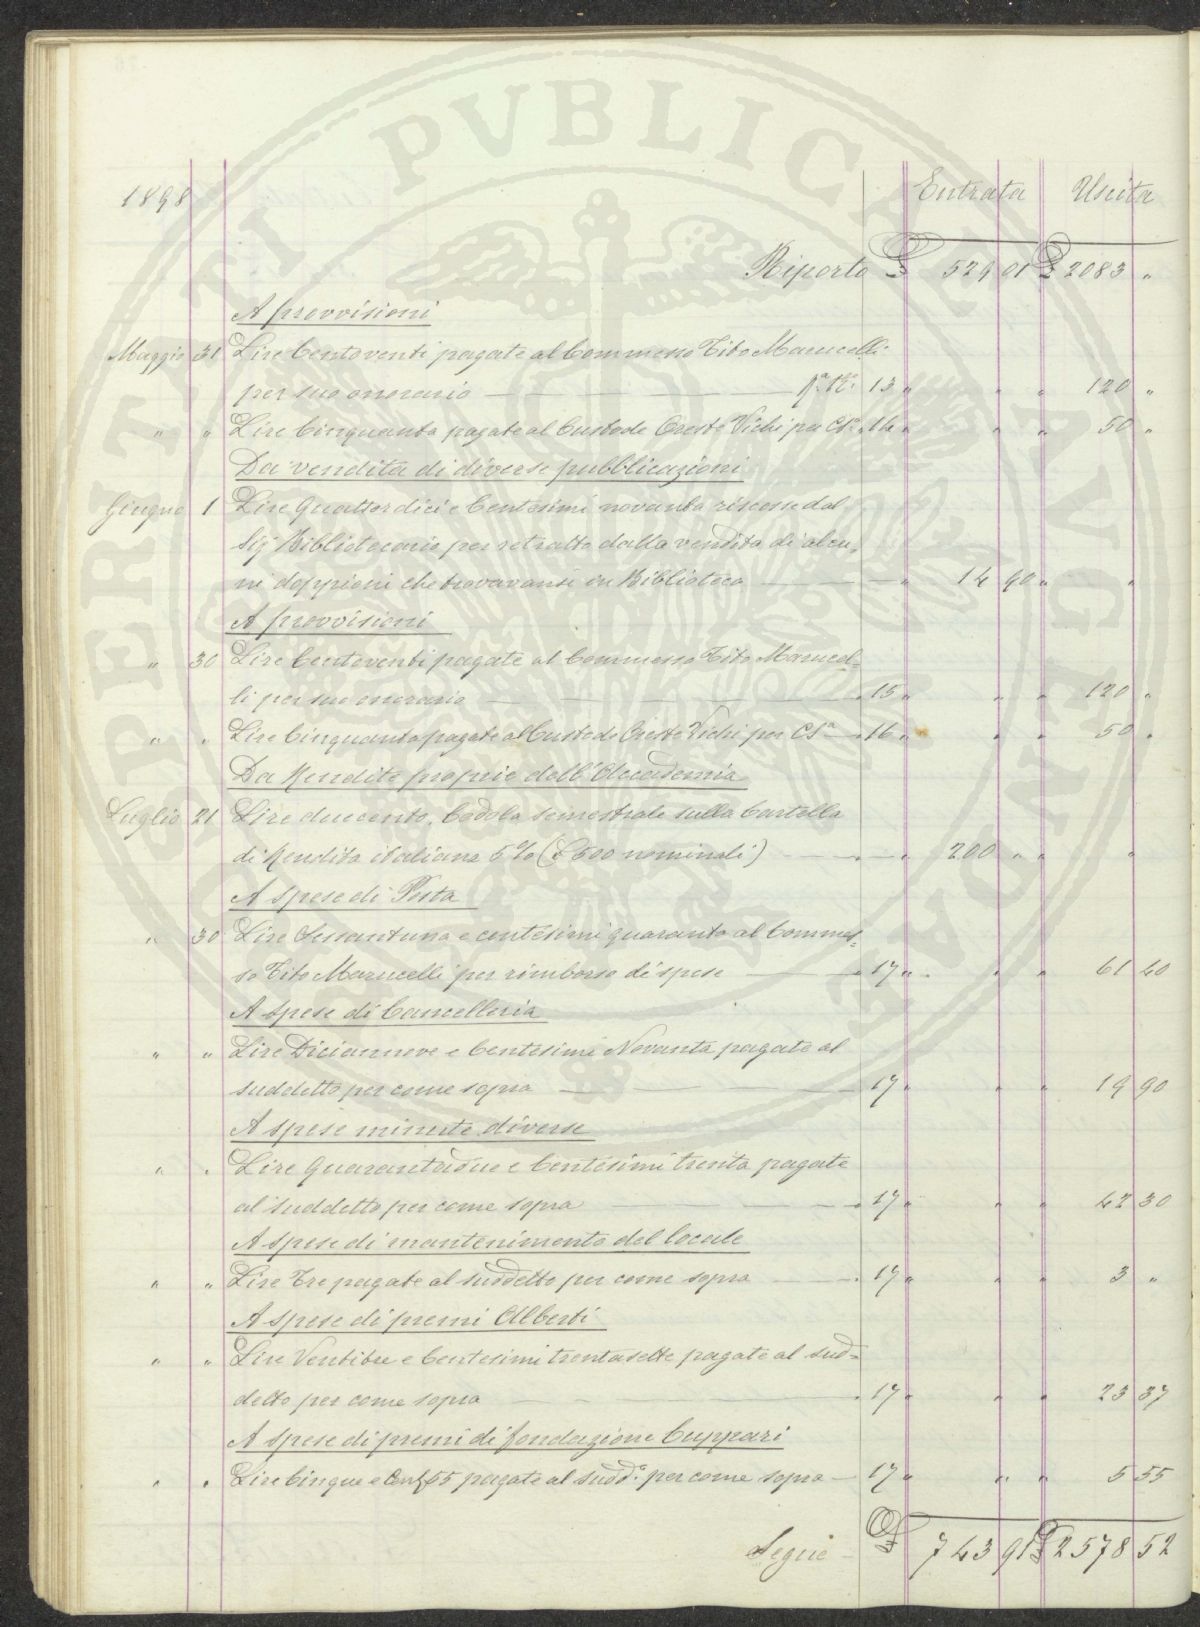 PERITI PVBLICAE AVGENDAE
1898 Entrata Uscita
Riporto £ 529 01 £ 2083 "
A provvisioni
Maggio 31 Lire Centoventi pagate al Commesso Tito Marucelli
per suo onorario 13 " " " 120 "
" " Lire Cinquanta pagate al Custode Oreste Vichi per Cs.ª 14 " " " 50 "
Da vendita di diverse pubblicazioni
Giugno 1 Lire Quattordici e Centesimi novanta riscosse dal
Sig Bibliotecario per retratto dalla vendita di alcu-
ni doppioni che trovavansi in Biblioteca " 14 90 " "
A provvisioni
" 30 Lire Centoventi pagate al Commesso Tito Marucel=
li per suo onorario " 15 " " " 120 "
" " Lire Cinquanta pagate al Custode Oreste Vichi per Csª " 16 " " " 50 "
Da Rendite proprie dell'Accademia
Luglio 21 Lire duecento, Cedola semestrale sulla Cartella
di Rendita italiana 5% (£ 500 nominali) " " 200 " " "
A spese di Posta
" 30 Lire Sessantuna e centesimi quaranta al Commes=
so Tito Marucelli per rimborso di spese " 17 " " " 61 40
A spese di Cancelleria
" " Lire Diciannove e Centesimi Novanta pagate al
suddetto per come sopra 17 " " " 19 90
A spese minute diverse
" " Lire Quarantadue e Centesimi trenta pagate
al suddetto per come sopra " 17 " " " 42 30
A spese di mantenimento del locale
" " Lire Tre pagate al suddetto per come sopra " 17 " " " 3 "
A spese di premi Alberti
" " Lire Ventitre e Centesimi trentasette pagate al sud=
detto per come sopra " 17 " " " 23 37
A spese di premi di fondazione Cuppari
" " Lire Cinque e Cent 55 pagate al sudd.º per come sopra 17 " " " 5 55
Segue £ 743 91 £ 2578 52